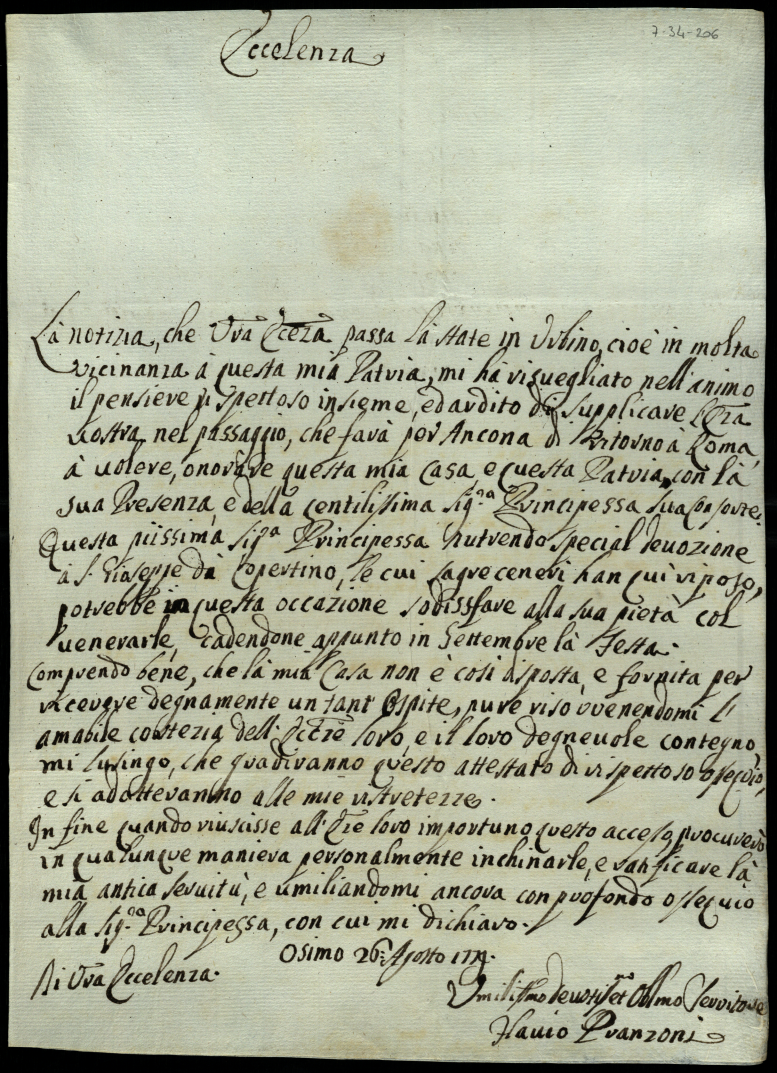 7-34-206
Eccelenza
La notizia, che Vrã Eccza passa là state in Urbino, cioè in molta
vicinanza à questa mià Patria, mi hà risuegliato nell'animo
il pensiere rispettoso insieme, ed ardito di supplicare
Vostra, nel passaggio, che farà per Ancona di Ritorno à Roma,
à uolere, onorare questa mià Casa, e questa Patria, con là
sua Presenza, e della Gentilissima Sig.ra Principessa sua Consorte.
Questa piissimà Sig.ra Principessa nutrendo special deuozione
à S. Giuseppe dà Copertino, le cui sagre ceneri han quì riposo,
potrebbe in questa occazione sodissfare alla sua pietà col
uenerarle, cadendone appunto in Settembre là Festa.
Comprendo bene, che là mià Casa non è così disposta, e fornita per
riceuere degnamente un tant'Ospite, pure risovvenendomi l'
amabile cortezia dell' loro, e il loro degneuole contegno,
mi lusingo, che gradiranno questo attestato di rispettoso ossequio,
e si adatteranno alle mie ristretezze.
In fine quando riuscisse all' loro importuno questo accesso, procurerò
in qualunque maniera personalmente inchinarle, e ratificare là
mià antica seruitù, e umiliandomi ancora con profondo ossequio
alla Sig.ra Principessa, con cui mi dichiaro.
Osimo 26: Agosto
Di Vrã Eccelenza.
Umilissmo Deuotiss et Obl.mo Servitore
Flauio Pranzoni